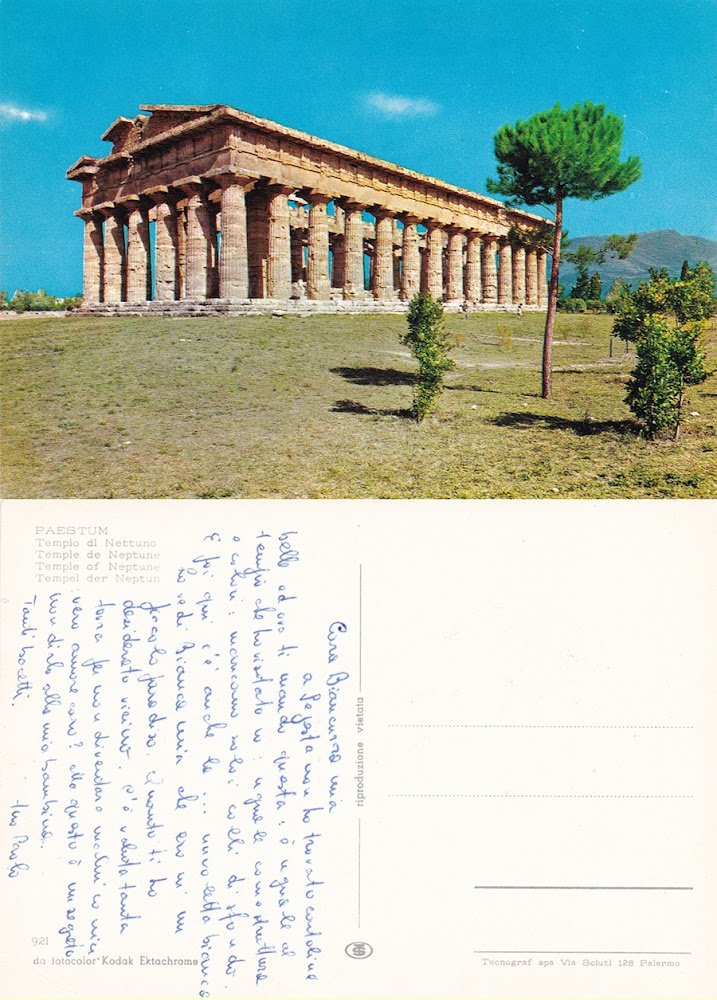 PAESTUM
Tempio di Nettuno
Temple de Neptune
Temple of Neptune
Tempel der Neptun
Cara Biancuzza mia
a Segesta non ho trovato cartoline
belle ed ora ti mando questa: è uguale al
tempio che ho visitato ... uguale come struttura
e colori: mancano solo i colli di sfondo.
E poi qui c'è anche la ... nuvoletta bianca
Lo vedi Bianca mia che ero in un
piccolo paradiso. Quanto ti ho
desiderato vicino. C'è voluta tanta
forza per non diventare malinconici
vero amore caro? Ma questo è un segreto
non dirlo alla mia bambina.
Tanti bacetti.
tuo Paolo
riproduzione vietata
921
da fotocolor Kodak Ektachrome
Tecnograf spa Via Sciuti 128 Palermo